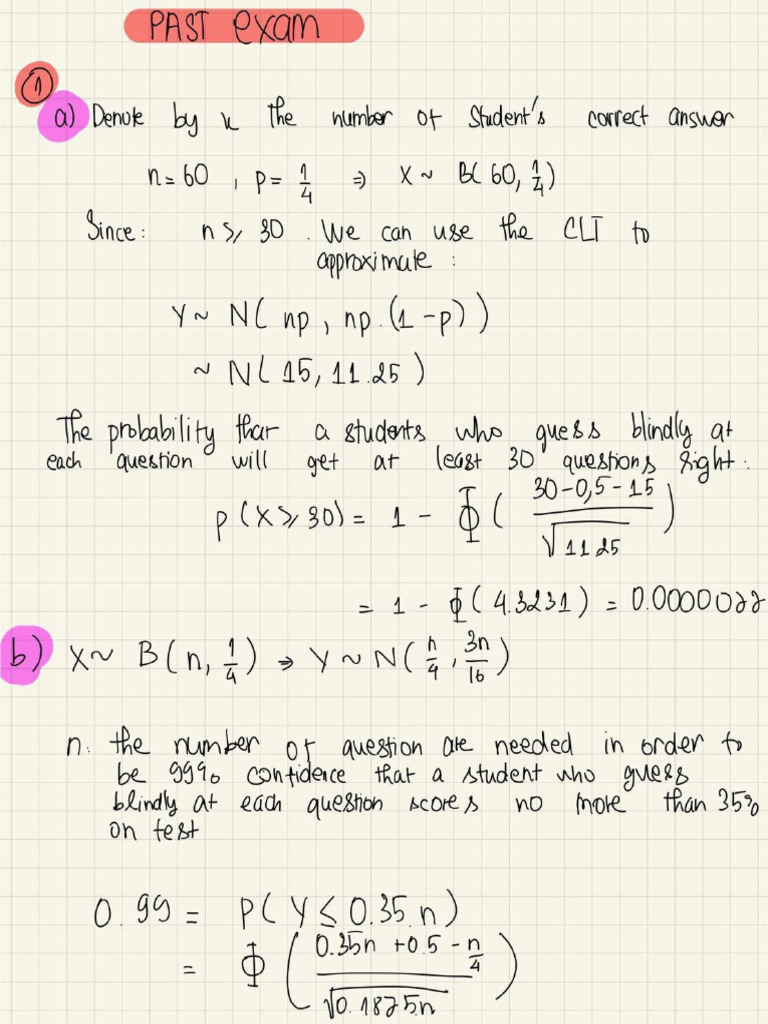 PAST exam
①
a) Denote by x the number of student's correct answer
n=60 , p= 1/4 ⇒ X ~ B( 60, 1/4 )
Since: n ≥ 30 . We can use the CLT to
approximate :
Y ~ N( np , np.(1-p))
~ N( 15, 11.25 )
The probability that a students who guess blindly at
each question will get at least 30 questions right :
p (X ≥ 30) = 1 - Φ ( (30-0,5-15) / √11.25 )
= 1 - Φ( 4.3231) = 0.0000077
b) X ~ B( n, 1/4 ) ⇒ Y ~ N( n/4 , 3n/16 )
n: the number of question are needed in order to
be 99% confidence that a student who guess
blindly at each question scores no more than 35%
on test
0.99 = P( Y ≤ 0.35.n )
= Φ ( (0.35n +0.5 - n/4) / √0.1875.n )